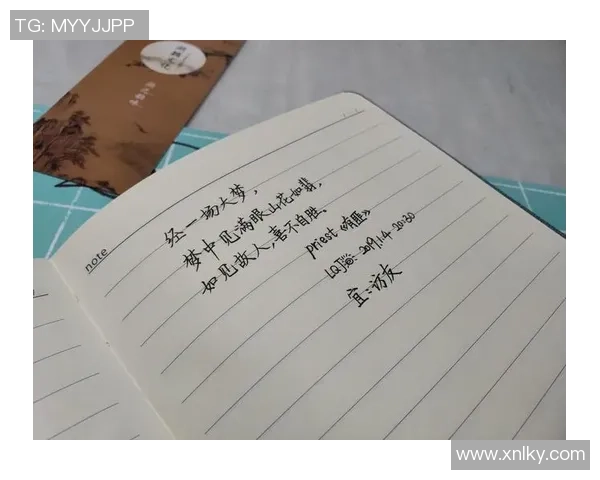 TG: MYYJJPP
note
经一场大梦，
梦中见满眼山花如翡，
如见故人，喜不自胜
priest《有匪》
2019.1.4 20:30
宜：访友
www.xnlky.com